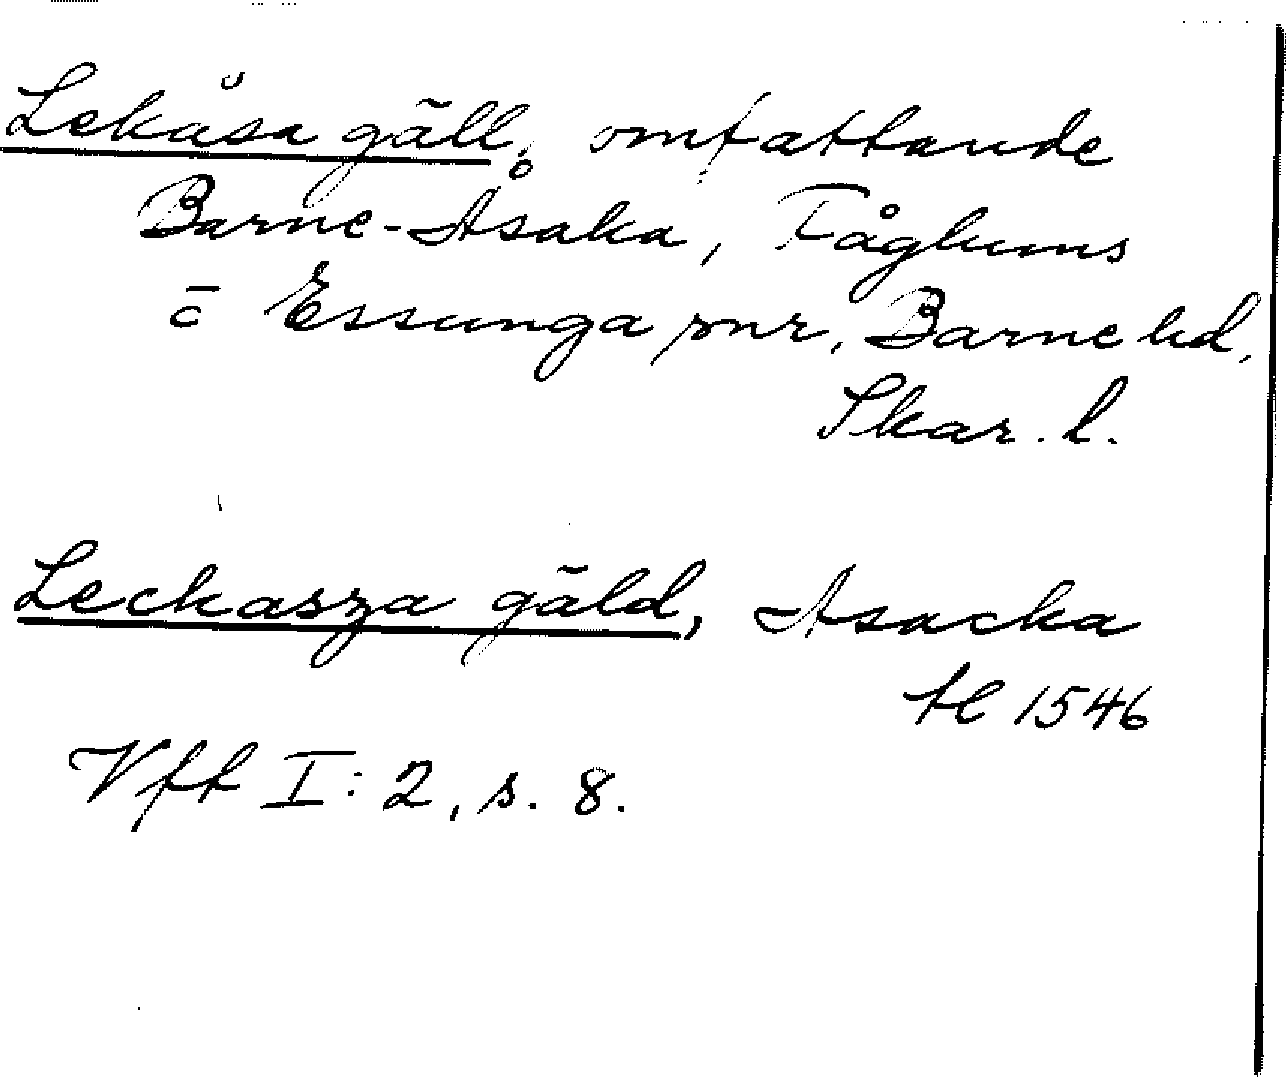 Lekåsa gäll, omfattande
Barne-Åsaka, Fåglums
o Essunga snr, Barne hd,
Skar. l.
Leckasza gäld, Asacka
tl 1546
Vft I: 2, s. 8.